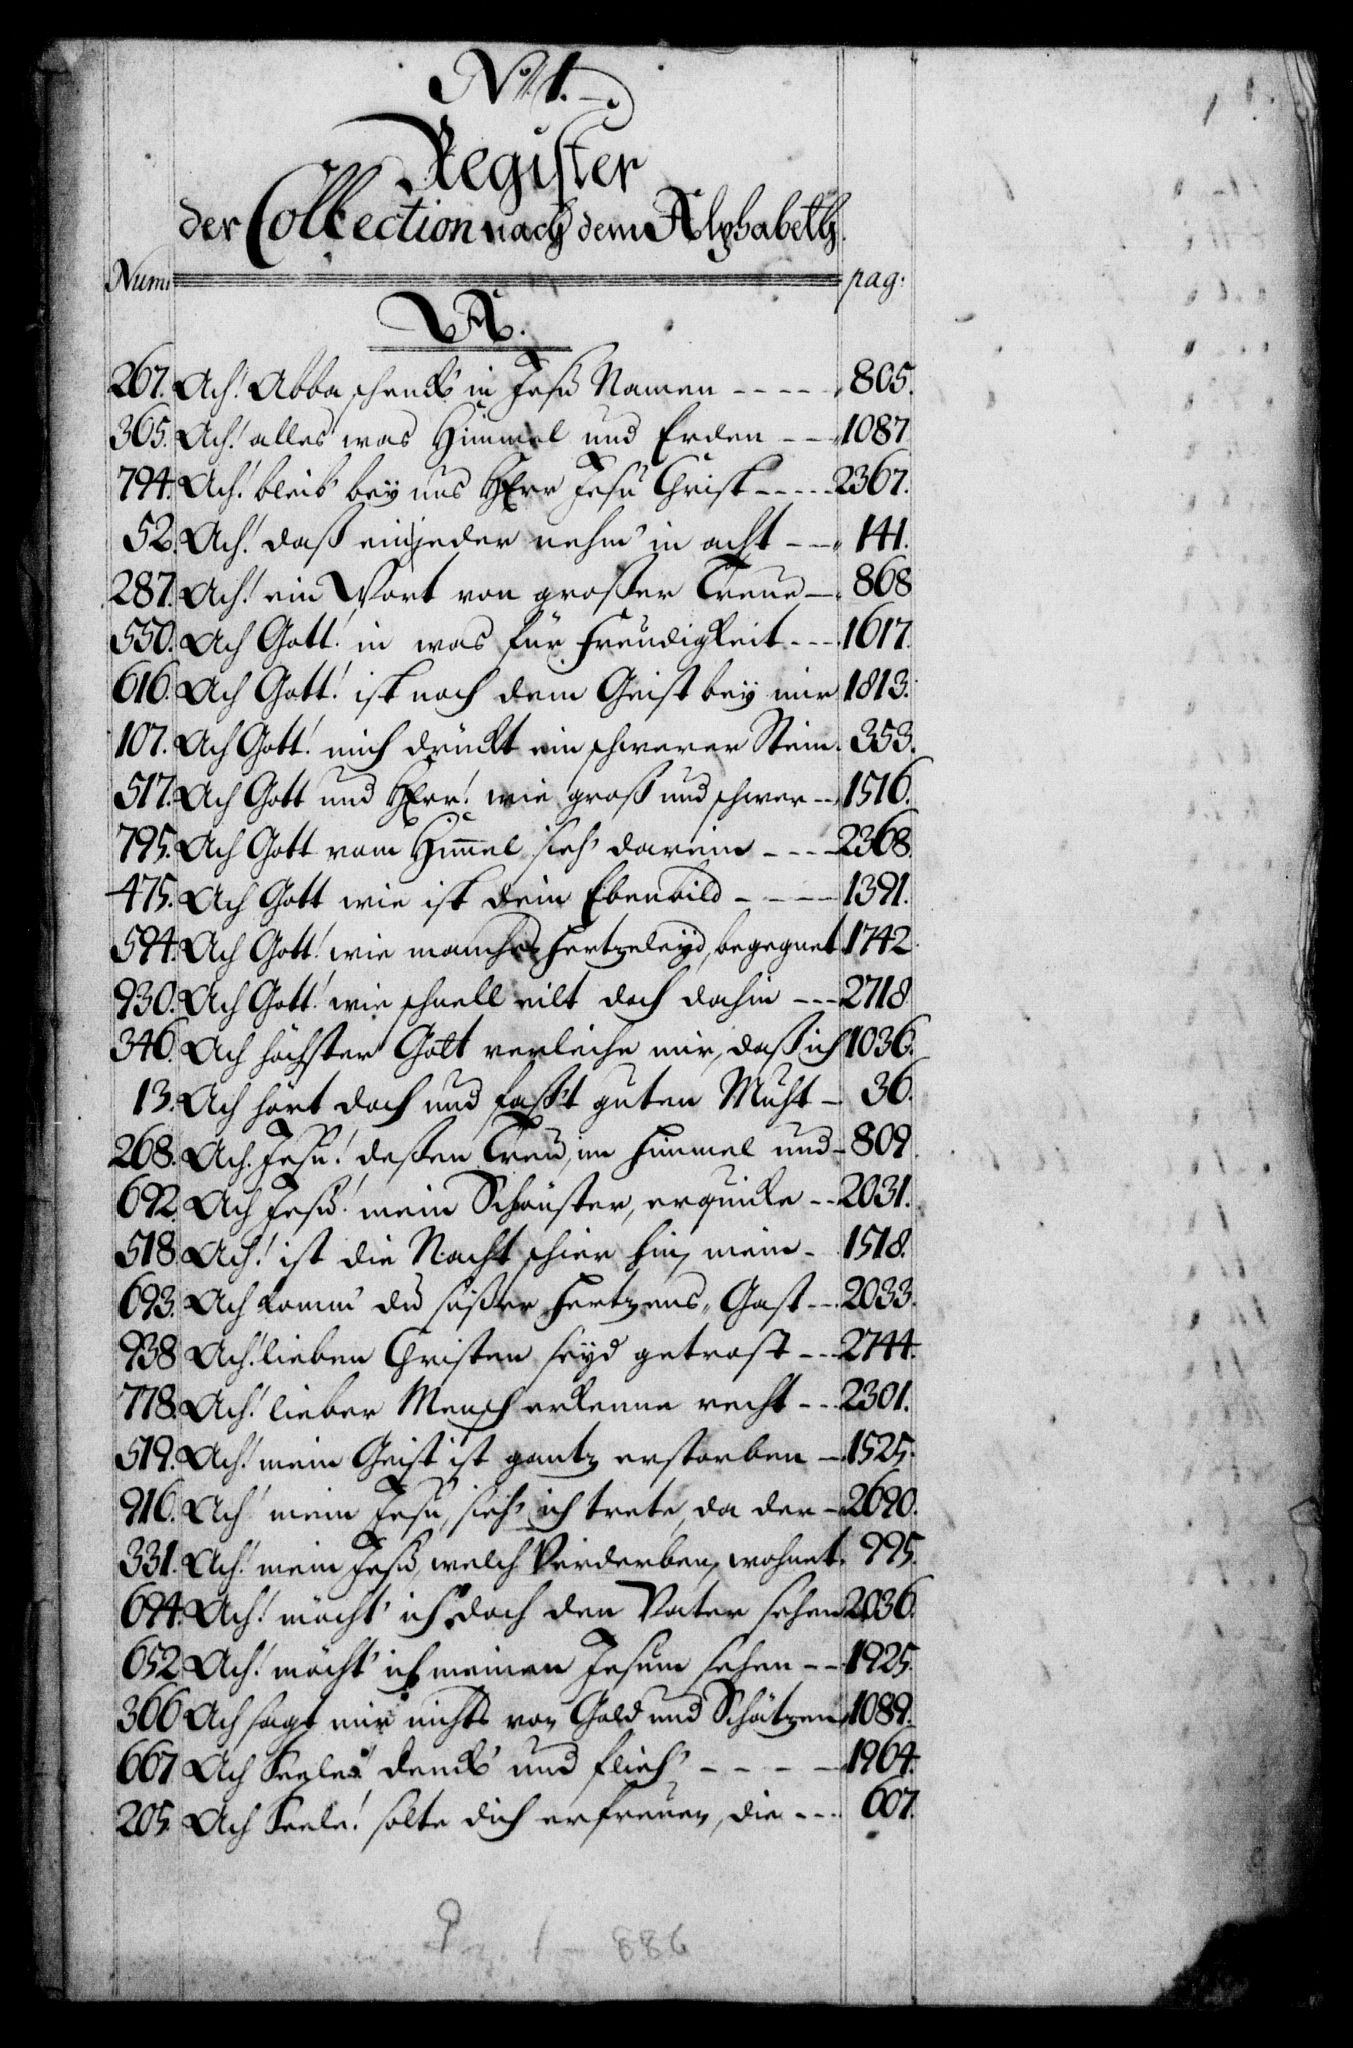 No. 1.
Register
der Collection nach dem Alphabeth.
Num: pag:
A.
267. Ach! Abba schenck' in Jesu Namen - - - - - 805.
365. Ach! alles was Himmel und Erden - - - 1087
794. Ach! bleib' bey uns HErr Jesu Christ - - - - 2367.
52. Ach! daß ein jeder nehm' in acht - - - 141.
287. Ach! ein Wort von großer Treue - - 868
550. Ach Gott! in was für Freudigkeit - - - 1617.
616. Ach Gott! ist noch dem Geist bey mir 1813.
107. Ach Gott! mich drückt ein schwerer Stein. 353.
517. Ach Gott und HErr! wie groß und schwer - - 1516.
795. Ach Gott vom Himel sieh' darein - - - - 2368.
475. Ach Gott wie ist dein Ebenbild - - - - 1391.
594. Ach Gott! wie manches Hertzeleyd, begegnet 1742
930. Ach Gott! wie schnell eilt doch dahin - - - 2718
346. Ach höchster Gott verleihe mir, daß ich 1036.
13. Ach hört doch und faßt guten Muht - 36.
268. Ach. Jesu! deßen Treu, im Himmel und - 809
692. Ach Jesu! mein Schönster, erquicke - - 2031.
518. Ach! ist die Nacht schier hin, mein - 1518.
693. Ach komm' du süßer Hertzens, Gast - - 2033.
938 Ach! lieben Christen seyd getrost - - - 2744.
778. Ach! lieber Mensch erkenne recht - - - 2301.
519. Ach! mein Geist ist gantz erstorben - 1525.
916. Ach! mein Jesu, sieh' ich trete, da der - 2690.
331. Ach! mein Jesu, welch Verderben, wohnet. 995.
694. Ach! möcht' ich doch den Vater sehen 2036.
652 Ach! möcht' ich meinen Jesum sehen - - 1925.
366 Ach sagt mir nichts von Gold und Schätzen 1089.
667 Ach Seele! denck' und flieh' - - - - 1964.
205. Ach Seele! solte dich erfreuen, die - - - 607.
1 - 886